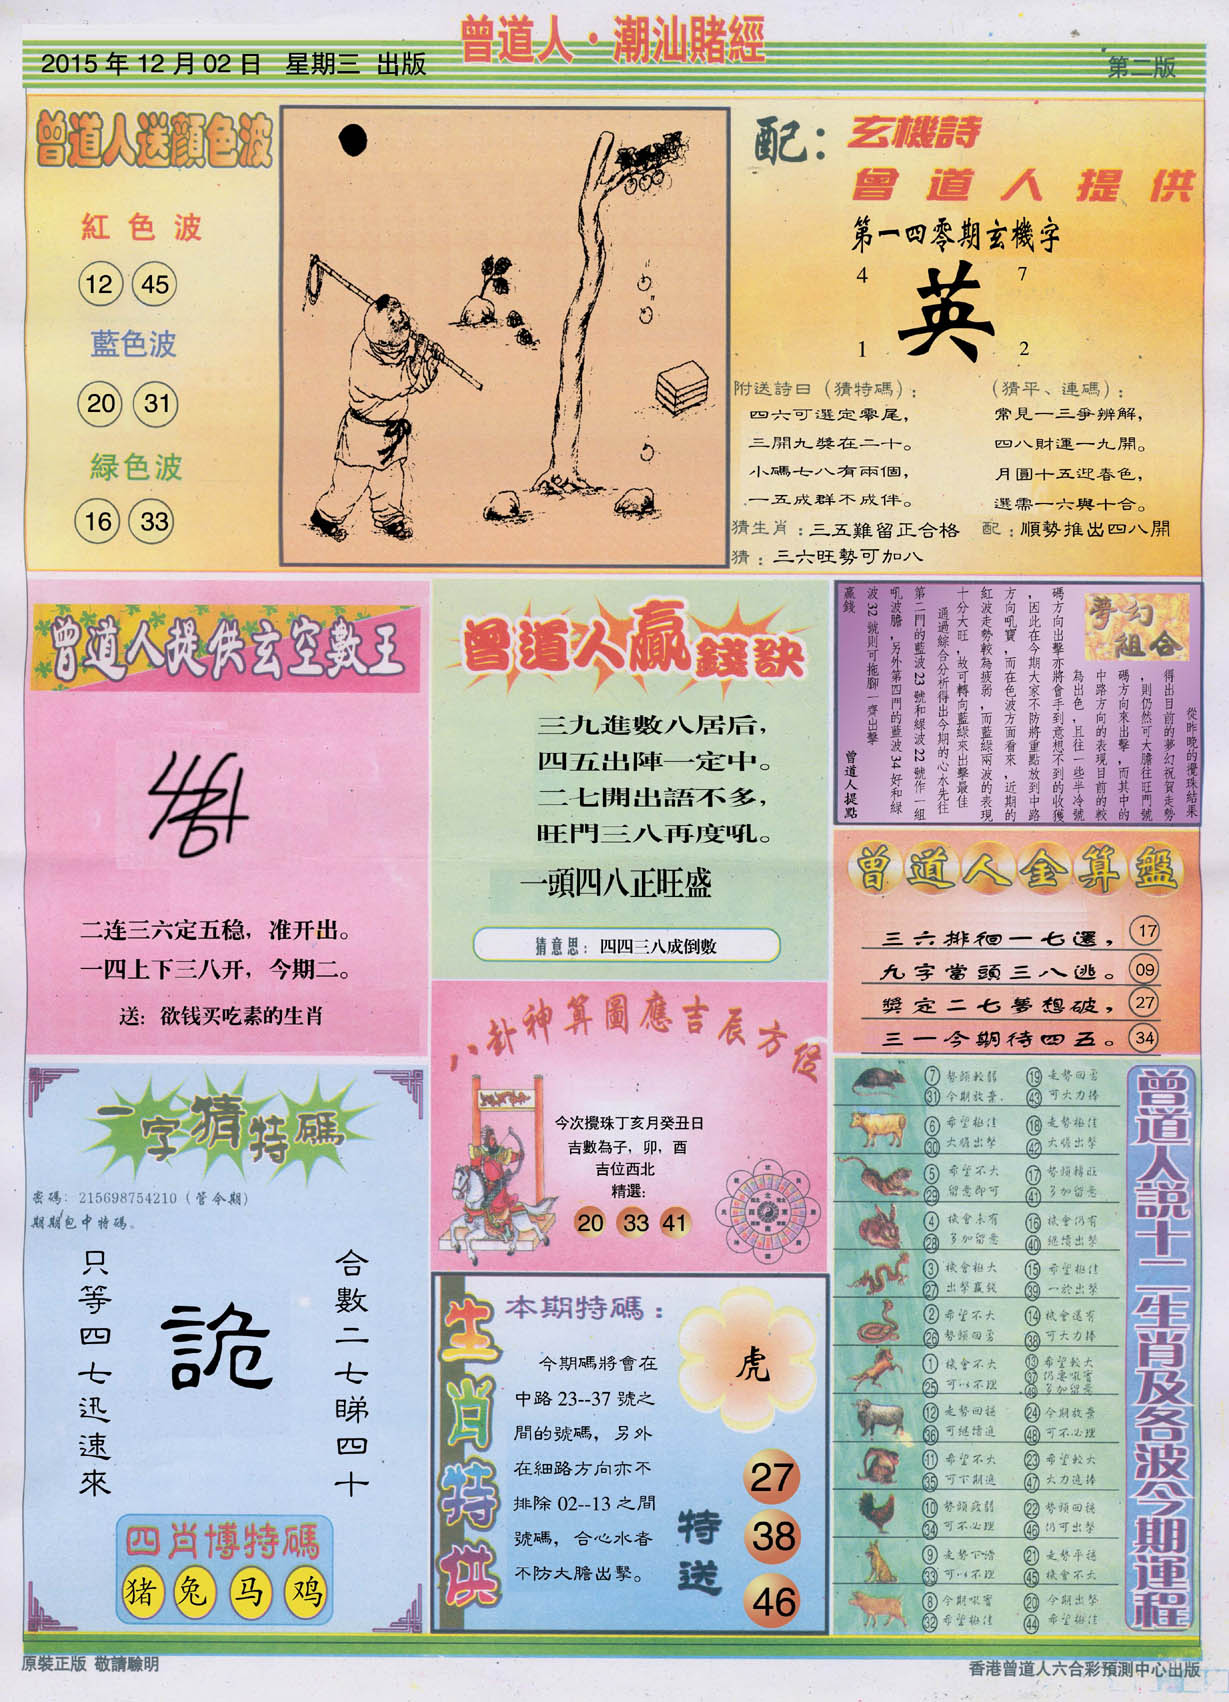 曾道人·潮汕賭經
2015年12月02日 星期三 出版
第二版
曾道人送顏色波
紅色波
12 45
藍色波
20 31
緑色波
16 33
配：玄機詩
曾道人提供
第一四零期玄機字
4 7
英
1 2
附送詩曰（猜特碼）：
四六可選定零尾，
三開九獎在二十。
小碼七八有兩個，
一五成群不成伴。
（猜平、連碼）：
常見一三爭辨解，
四八財運一九開。
月圓十五迎春色，
選需一六與十合。
猜生肖：三五難留正合格
配：順勢推出四八開
猜：三六旺勢可加八
曾道人提供玄空數王
二连三六定五稳，准开出。
一四上下三八开，今期二。
送：欲钱买吃素的生肖
曾道人贏錢訣
三九進數八居后，
四五出陣一定中。
二七開出語不多，
旺門三八再度吼。
一頭四八正旺盛
猜意思：四四三八成倒數
夢幻組合
從昨晚的攪珠結果
得出目前的夢幻祝賀走勢
，則仍然可大膽往旺門號
碼方向來出擊，而其中的
中路方向的表現目前的較
為出色，且往一些半冷號
碼方向出擊亦將會手到意想不到的收獲
，因此在今期大家不防將重點放到中路
方向吼寶，而在色波方面看來，近期的
紅波走勢較為疲弱，而藍綠兩波的表現
十分大旺，故可轉向藍綠來出擊最佳
通過綜合分析得出今期的心水先往
第二門的藍波23號和綠波22號作一組
吼波膽，另外第四門的藍波34好和綠
波32號則可拖腳一齊出擊
贏錢
曾道人提點
曾道人金算盤
三六排徊一七選， 17
九字當頭三八逃。 09
獎定二七夢想破， 27
三一今期待四五。 34
八卦神算圖應吉辰方位
今次攪珠丁亥月癸丑日
吉數為子，卯，酉
吉位西北
精選：
20 33 41
一字猜特碼
密碼：215698754210（管今期）
期期包中特碼。
合數二七睇四十
詭
只等四七迅速來
四肖博特碼
猪 兔 马 鸡
生肖特供
本期特碼：
今期碼將會在
中路23--37號之
間的號碼，另外
在細路方向亦不
排除02--13之間
號碼，合心水者
不防大膽出擊。
虎
特送
27
38
46
曾道人説十二生肖及各波今期運程
7 勢頭較弱 19 走勢回勇
31 今期放棄 43 可大力捧
6 希望極佳 18 走勢極佳
30 大膽出擊 42 大膽出擊
5 希望不大 17 勢頭轉旺
29 留意即可 41 多加留意
4 機會未有 16 機會仍有
28 多加留意 40 繼續出擊
3 機會極大 15 希望極佳
27 出擊贏錢 39 一於出擊
2 希望不大 14 機會還有
26 勢頭回勇 38 可大力捧
1 機會不大 13 希望較大
25 可以不理 37 仍要吸實
49 多加留意
12 走勢回穩 24 今期放棄
36 可繼續追 48 可不必理
11 希望不大 23 希望較大
35 可下期追 47 大力追捧
10 勢頭疲弱 22 勢頭回穩
34 可不必理 46 仍可出擊
9 走勢下滑 21 走勢平穩
33 可以不理 45 機會不大
8 今期吸實 20 今期出擊
32 希望極佳 44 希望極佳
原裝正版 敬請驗明
香港曾道人六合彩預測中心出版